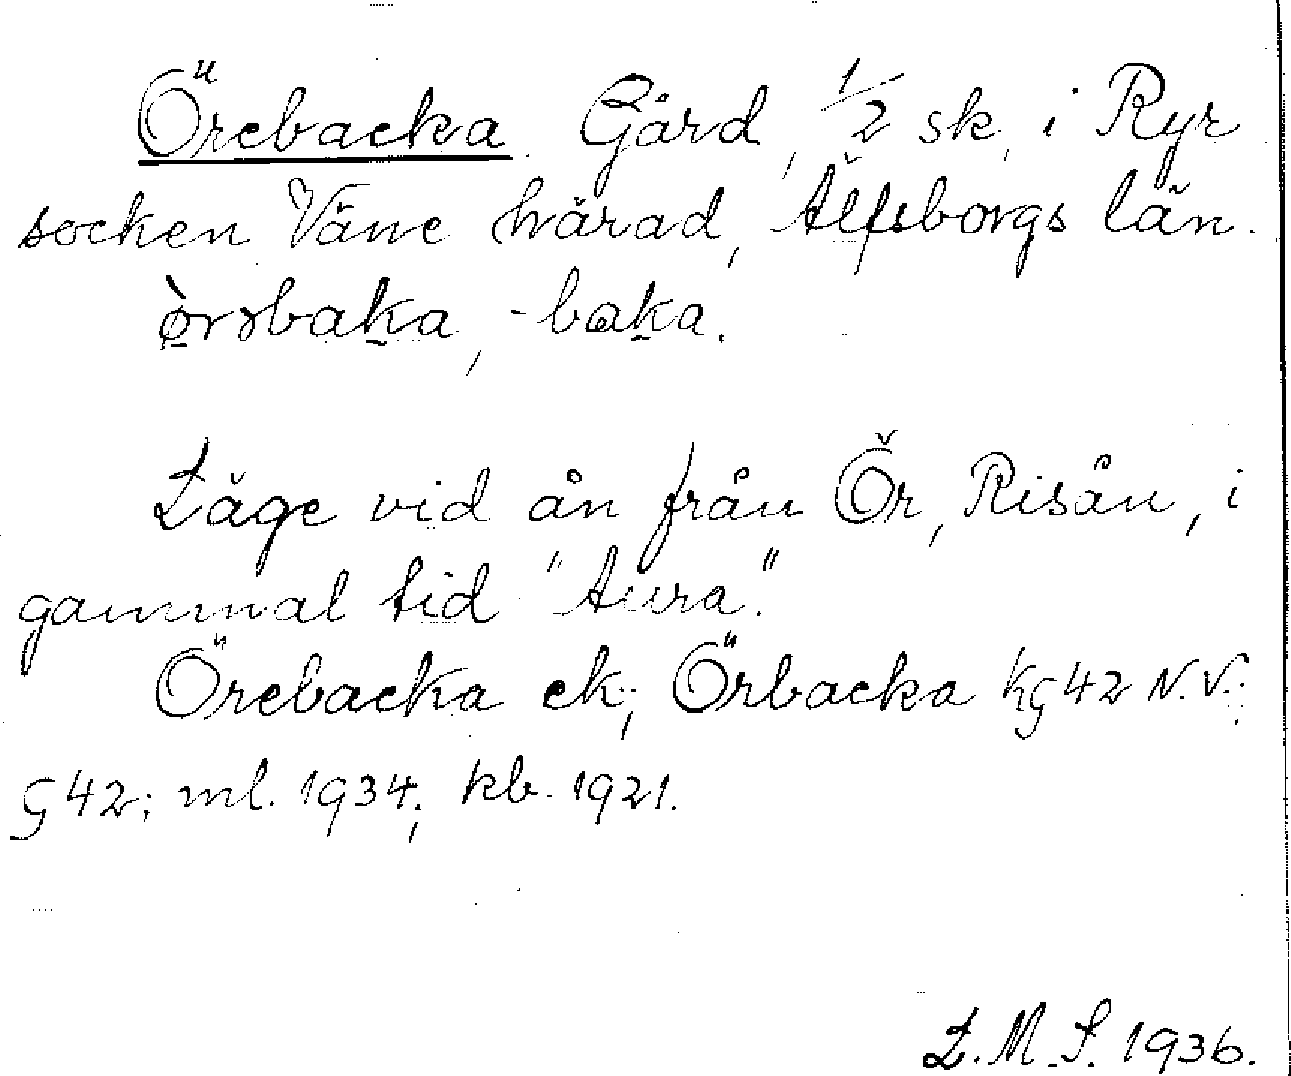 Örebacka. Gård, 1/2 sk, i Ryr
socken Väne härad, Älfsborgs län.
ø̀rəbaka, -baka.
Läge vid ån från Ör, Risån, i
gammal tid "Aura".
Örebacka ek; Örbacka kG42 N.V.;
G42; ml. 1934; kb. 1921.
L.M.S. 1936.